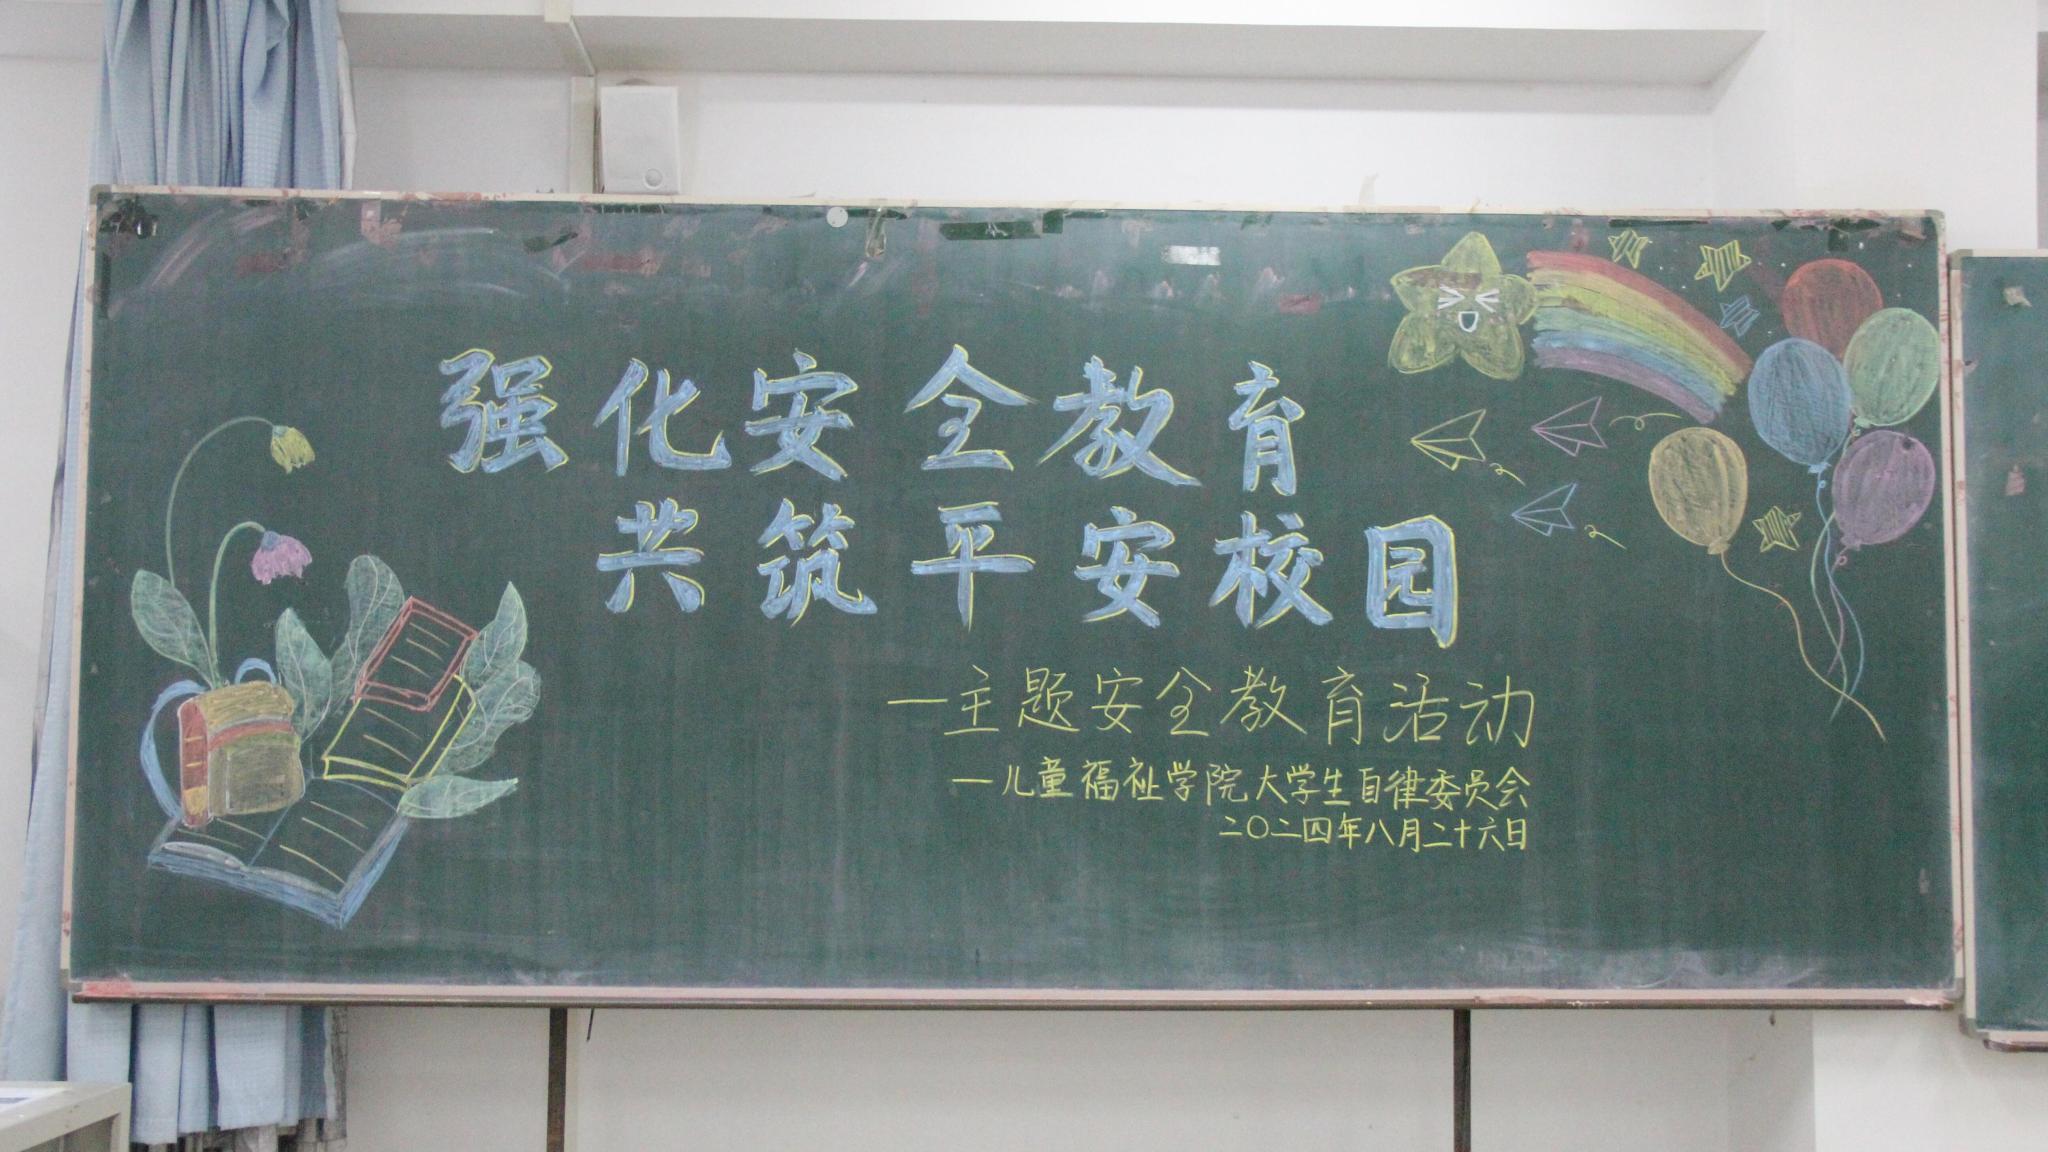 强化安全教育
共筑平安校园
—主题安全教育活动
—儿童福祉学院大学生自律委员会
二〇二四年八月二十六日